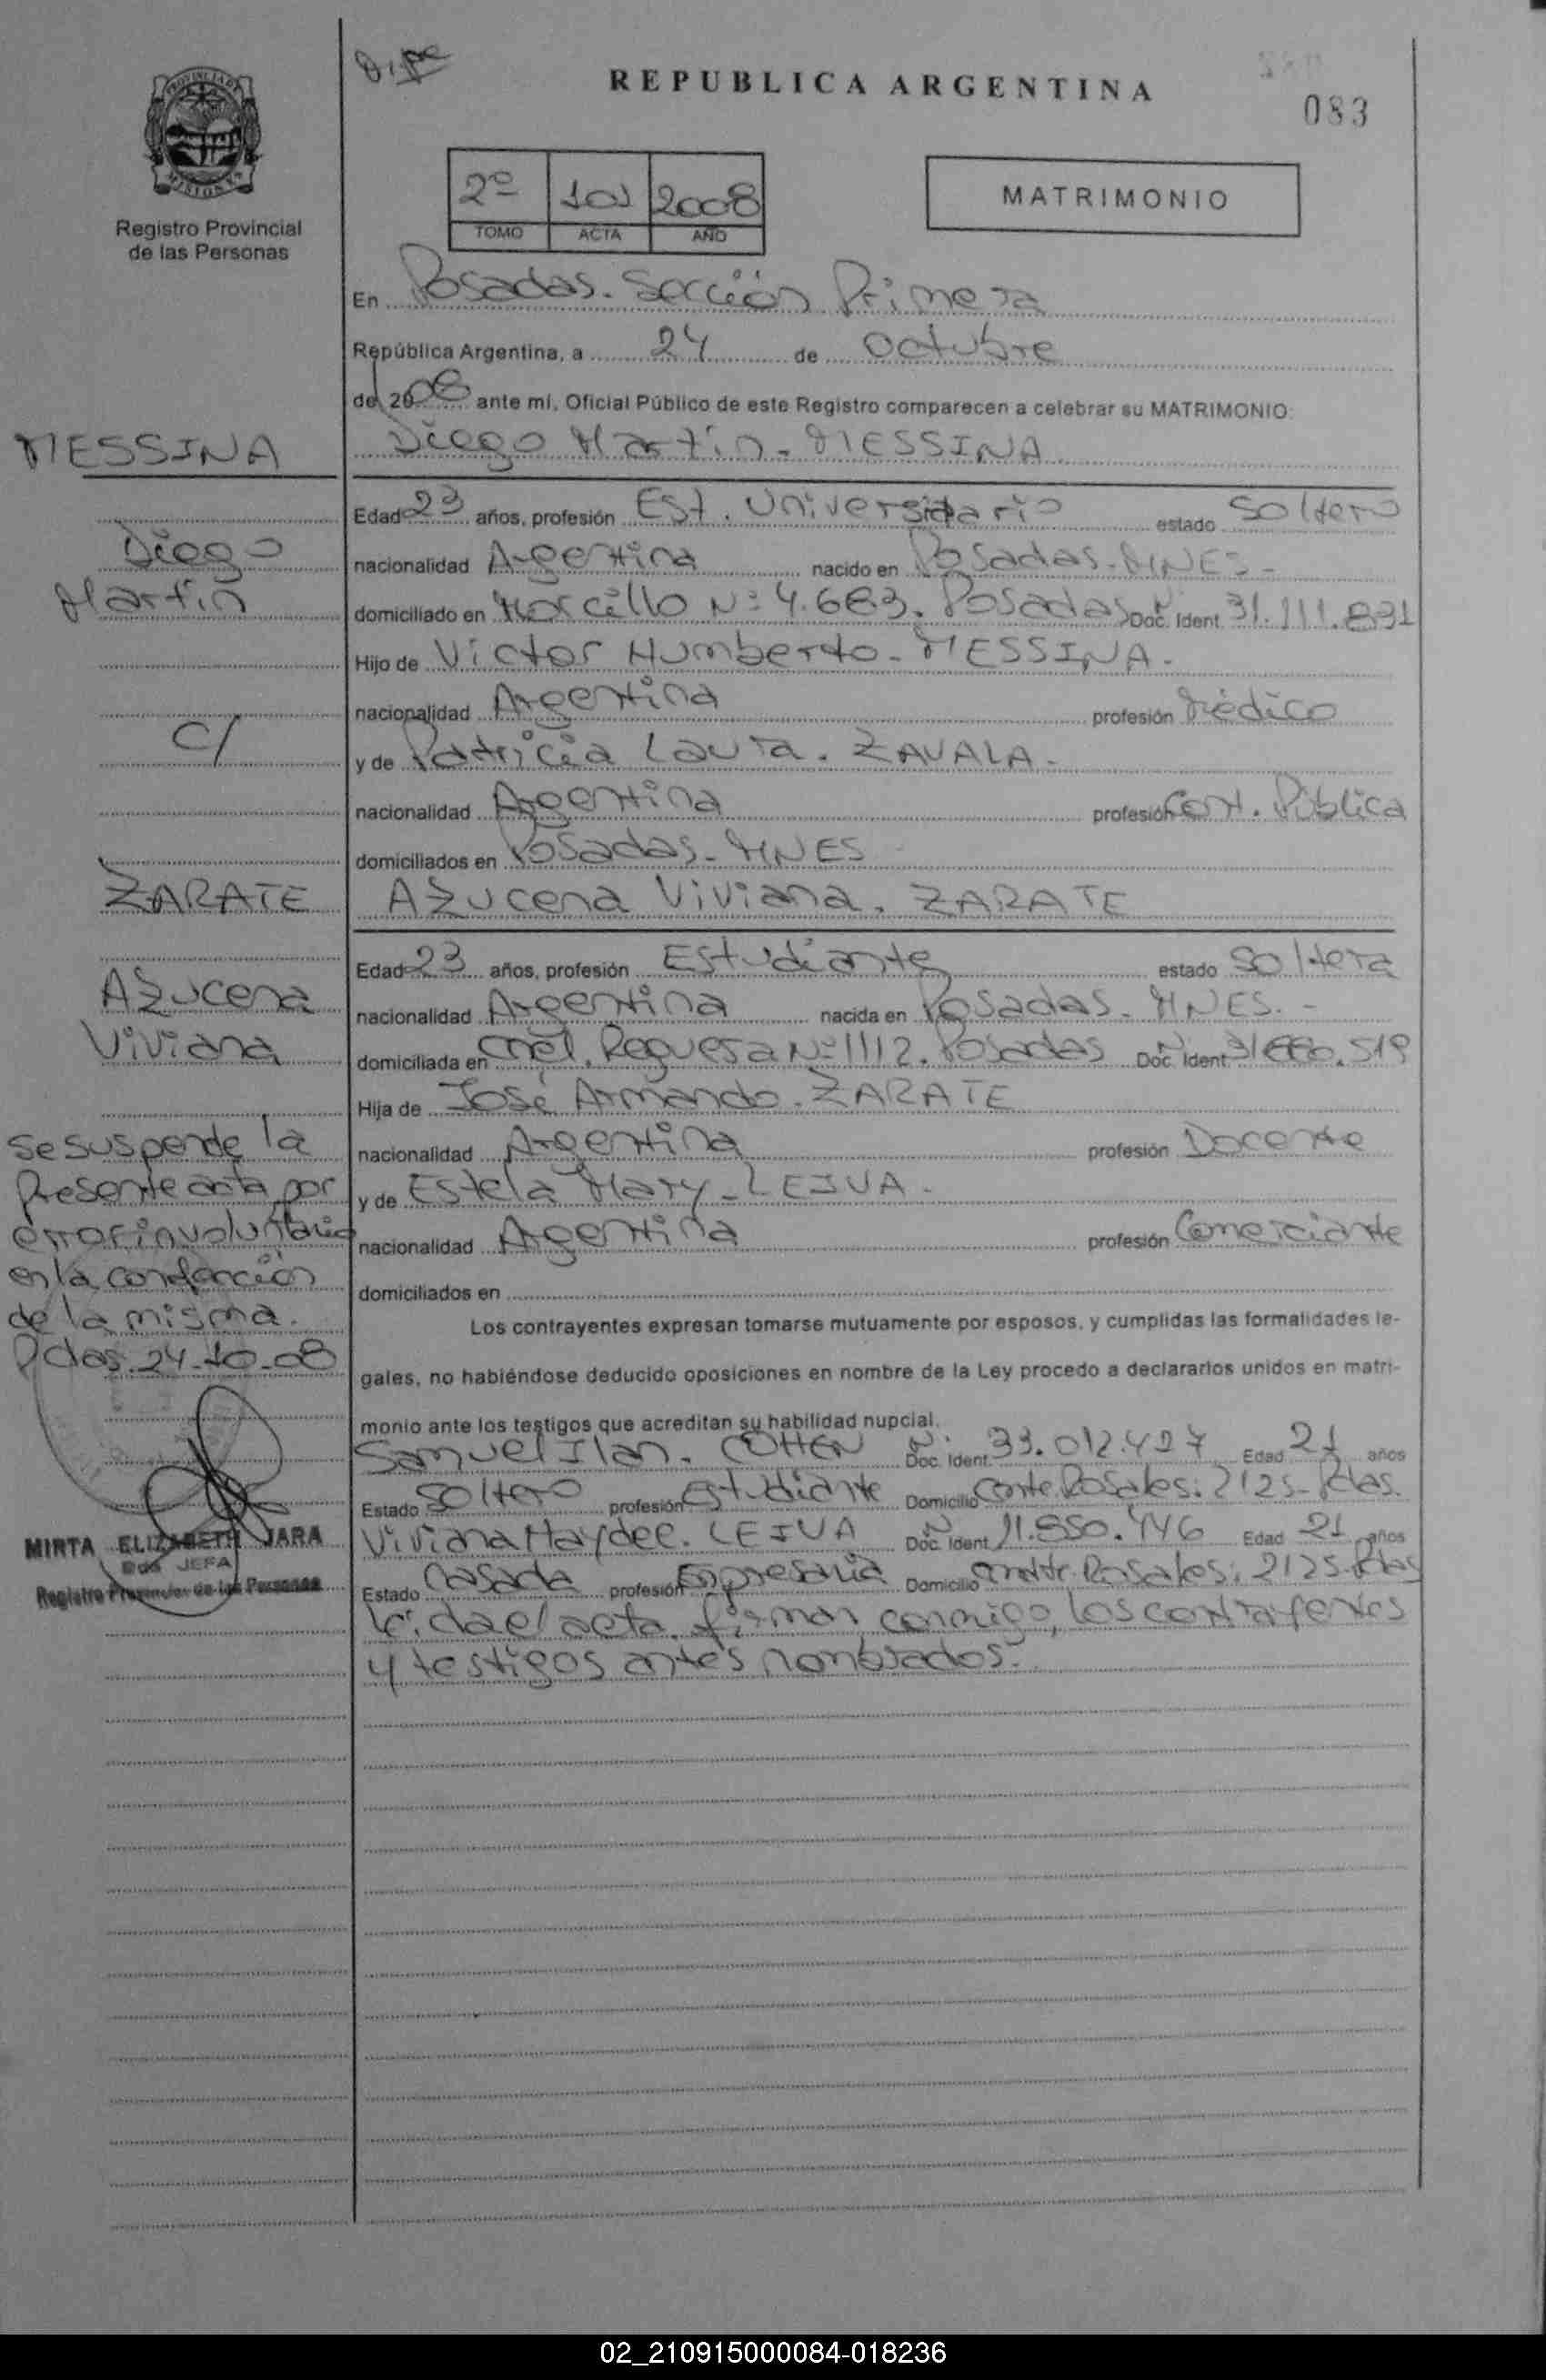 REPUBLICA ARGENTINA
083
PROVINCIA DE MISIONES
Registro Provincial
de las Personas
2º 101 2008
TOMO ACTA AÑO
MATRIMONIO
En Posadas. Sección Primera
República Argentina, a 24 de Octubre
del 2008 ante mí, Oficial Público de este Registro comparecen a celebrar su MATRIMONIO:
Diego Martin. MESSINA
Edad 23 años, profesión Est. Universitario estado Soltero
nacionalidad Argentina nacido en Posadas. MNES-
domiciliado en Morcillo Nº 4.683. Posadas Doc. Ident. Nº 31.111.831
Hijo de Victor Humberto. MESSINA.
nacionalidad Argentina profesión Médico
y de Patricia Laura. ZAVALA.
nacionalidad Argentina profesión Cont. Pública
domiciliados en Posadas. MNES
AZucena Viviana. ZARATE
Edad 23 años, profesión Estudiante estado Soltera
nacionalidad Argentina nacida en Posadas. MNES.-
domiciliada en Cnel. Reguera Nº 1112. Posadas Doc. Ident. Nº 519
Hija de José Armando. ZARATE
nacionalidad Argentina profesión Docente
y de Estela Mary. LEIVA.
nacionalidad Argentina profesión Comerciante
domiciliados en
Los contrayentes expresan tomarse mutuamente por esposos, y cumplidas las formalidades le-
gales, no habiéndose deducido oposiciones en nombre de la Ley procedo a declararlos unidos en matri-
monio ante los testigos que acreditan su habilidad nupcial.
Samuel Ilan. COHEN Doc. Ident. Nº 33.012.427 Edad 21 años
Estado Soltero profesión Estudiante Domicilio Cmte. Rosales: 2125-Pdas.
Viviana Haydee. LEIVA Doc. Ident. Nº 11.550.446 Edad 21 años
Estado Casada profesión Empresaria Domicilio Cmdte. Rosales: 2125-Pdas
Leida el acta, firman conmigo, los contrayentes
y testigos antes nombrados.
MESSINA
Diego
Martin
C/
ZARATE
AZucena
Viviana
Se suspende la
Presente acta por
error involuntario
en la confección
de la misma.
Pdas. 24-10-08
MIRTA ELIZABETH JARA
JEFA
Registro Provincial de las Personas
02_210915000084-018236